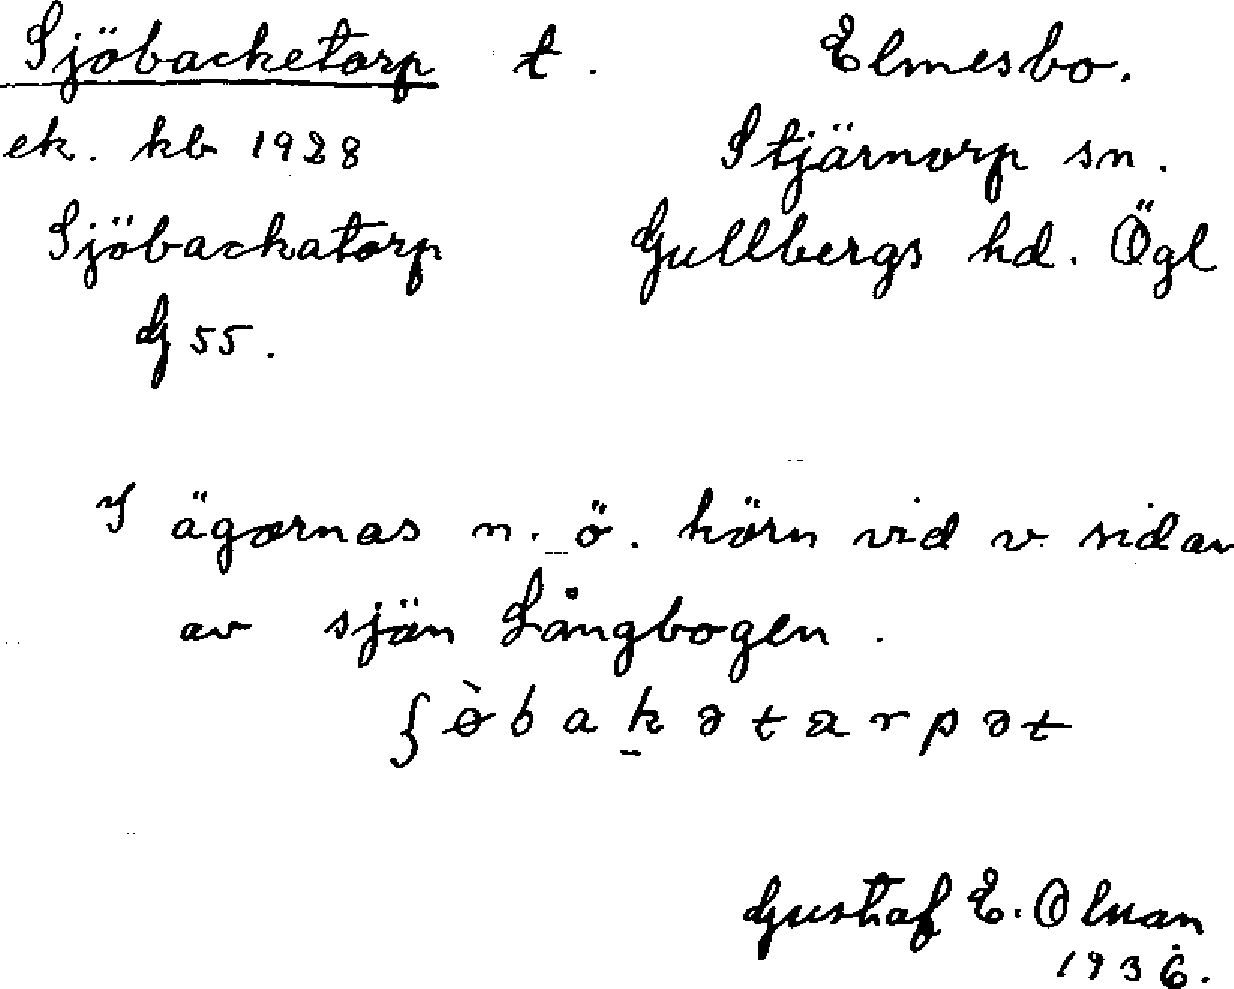 Sjöbacketorp t. Elmesbo.
ek. kb 1928 Stjärnorp sn.
Sjöbackatorp Gullbergs hd. Ögl
G 55.
I ägornas n. ö. hörn vid v. sidan
av sjön Långbogen.
ʃø̀bakətarpət
Gustaf E. Olsson
1936.